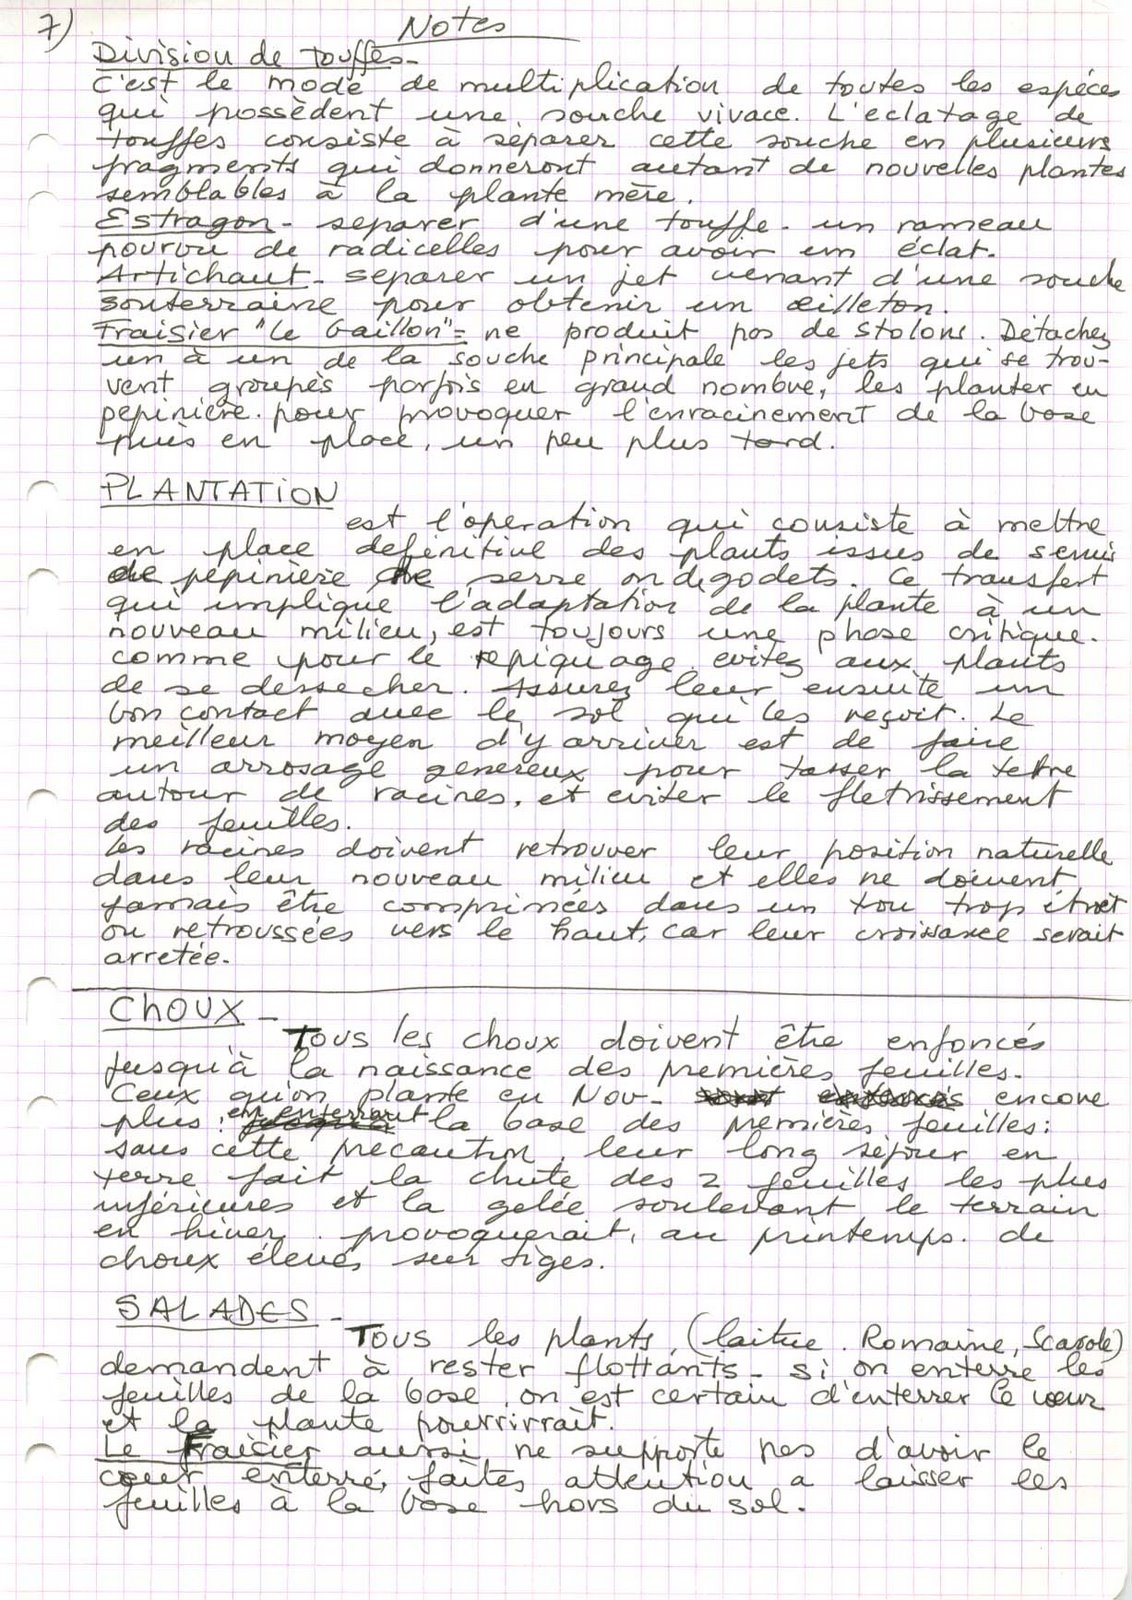 7)
Notes
Division de touffes-
C'est le mode de multiplication de toutes les espéces
qui possèdent une souche vivace. L'eclatage de
touffes consiste à séparer cette souche en plusieurs
fragments qui donneront autant de nouvelles plantes
semblables à la plante mère.
Estragon - separer d'une touffe un rameau
pourvu de radicelles pour avoir un éclat.
Artichaut - separer un jet venant d'une souche
souterraine pour obtenir un œilleton.
Fraisier "Le Gaillon" = ne produit pas de stolons. Détachez
un à un de la souche principale les jets qui se trou-
vent groupés parfois en grand nombre, les planter en
pepinière. pour provoquer l'enracinement de la base
puis en place, un peu plus tard.
PLANTATION
est l'operation qui consiste à mettre
en place definitive des plants issus de semis
de pepinière de serre on de godets. Ce transfert
qui implique l'adaptation de la plante à un
nouveau milieu, est toujours une phase critique.
comme pour le repiquage evitez aux plants
de se dessecher. Assurez leur ensuite un
bon contact avec le sol qui les reçoit. Le
meilleur moyen d'y arriver est de faire
un arrosage genereux pour tasser la terre
autour de racines, et eviter le fletrissement
des feuilles.
Les racines doivent retrouver leur position naturelle
dans leur nouveau milieu et elles ne doivent
jamais être comprimées dans un trou trop étroit
ou retroussées vers le haut, car leur croissance serait
arretée.
CHOUX -
Tous les choux doivent être enfoncés
jusqu'à la naissance des premières feuilles.
Ceux qu'on plante en Nov- encore
plus, en enterrant la base des premières feuilles:
sans cette precaution, leur long séjour en
terre fait la chute des 2 feuilles les plus
inférieures et la gelée soulevant le terrain
en hiver. provoquerait, au printemps. de
choux élevés sur tiges.
SALADES -
Tous les plants, (laitue. Romaine, Scarole)
demandent à rester flottants - si on enterre les
feuilles de la base on est certain d'enterrer le cœur
et la plante pourrirrait.
Le Fraisier aussi ne supporte pas d'avoir le
cœur enterré, faites attention a laisser les
feuilles à la base hors du sol.